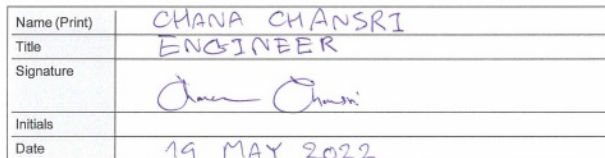 Name (Print) CHANA CHANSRI
Title ENGINEER
Signature Chana Chansri
Initials
Date 19 MAY 2022